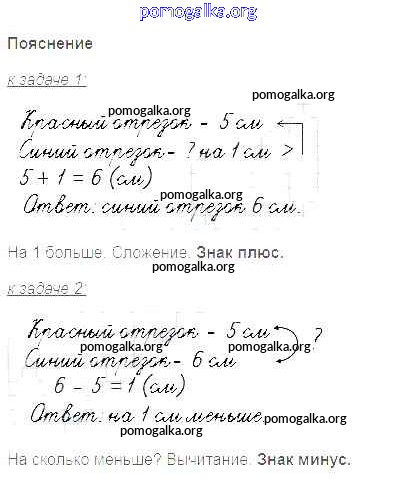 pomogalka.org
Пояснение
к задаче 1:
pomogalka.org
pomogalka.org
Красный отрезок - 5 см
Синий отрезок - ? на 1 см >
5 + 1 = 6 (см)
pomogalka.org
Ответ: синий отрезок 6 см.
На 1 больше. Сложение. Знак плюс.
pomogalka.org
к задаче 2:
pomogalka.org
Красный отрезок - 5 см
?
pomogalka.org
pomogalka.org
Синий отрезок - 6 см
6 - 5 = 1 (см)
Ответ: на 1 см меньше.
pomogalka.org
pomogalka.org
На сколько меньше? Вычитание. Знак минус.